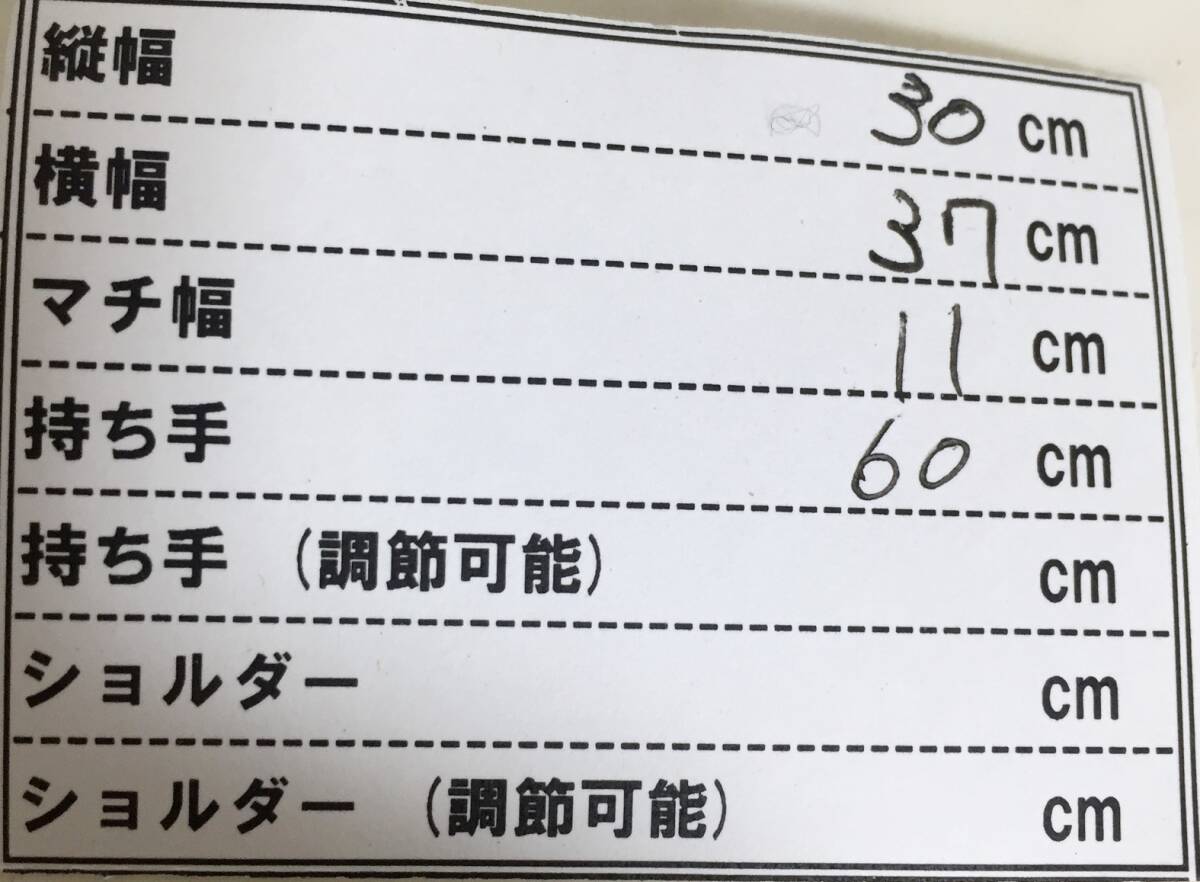 縦幅 30 cm
横幅 37 cm
マチ幅 11 cm
持ち手 60 cm
持ち手 (調節可能) cm
ショルダー cm
ショルダー (調節可能) cm